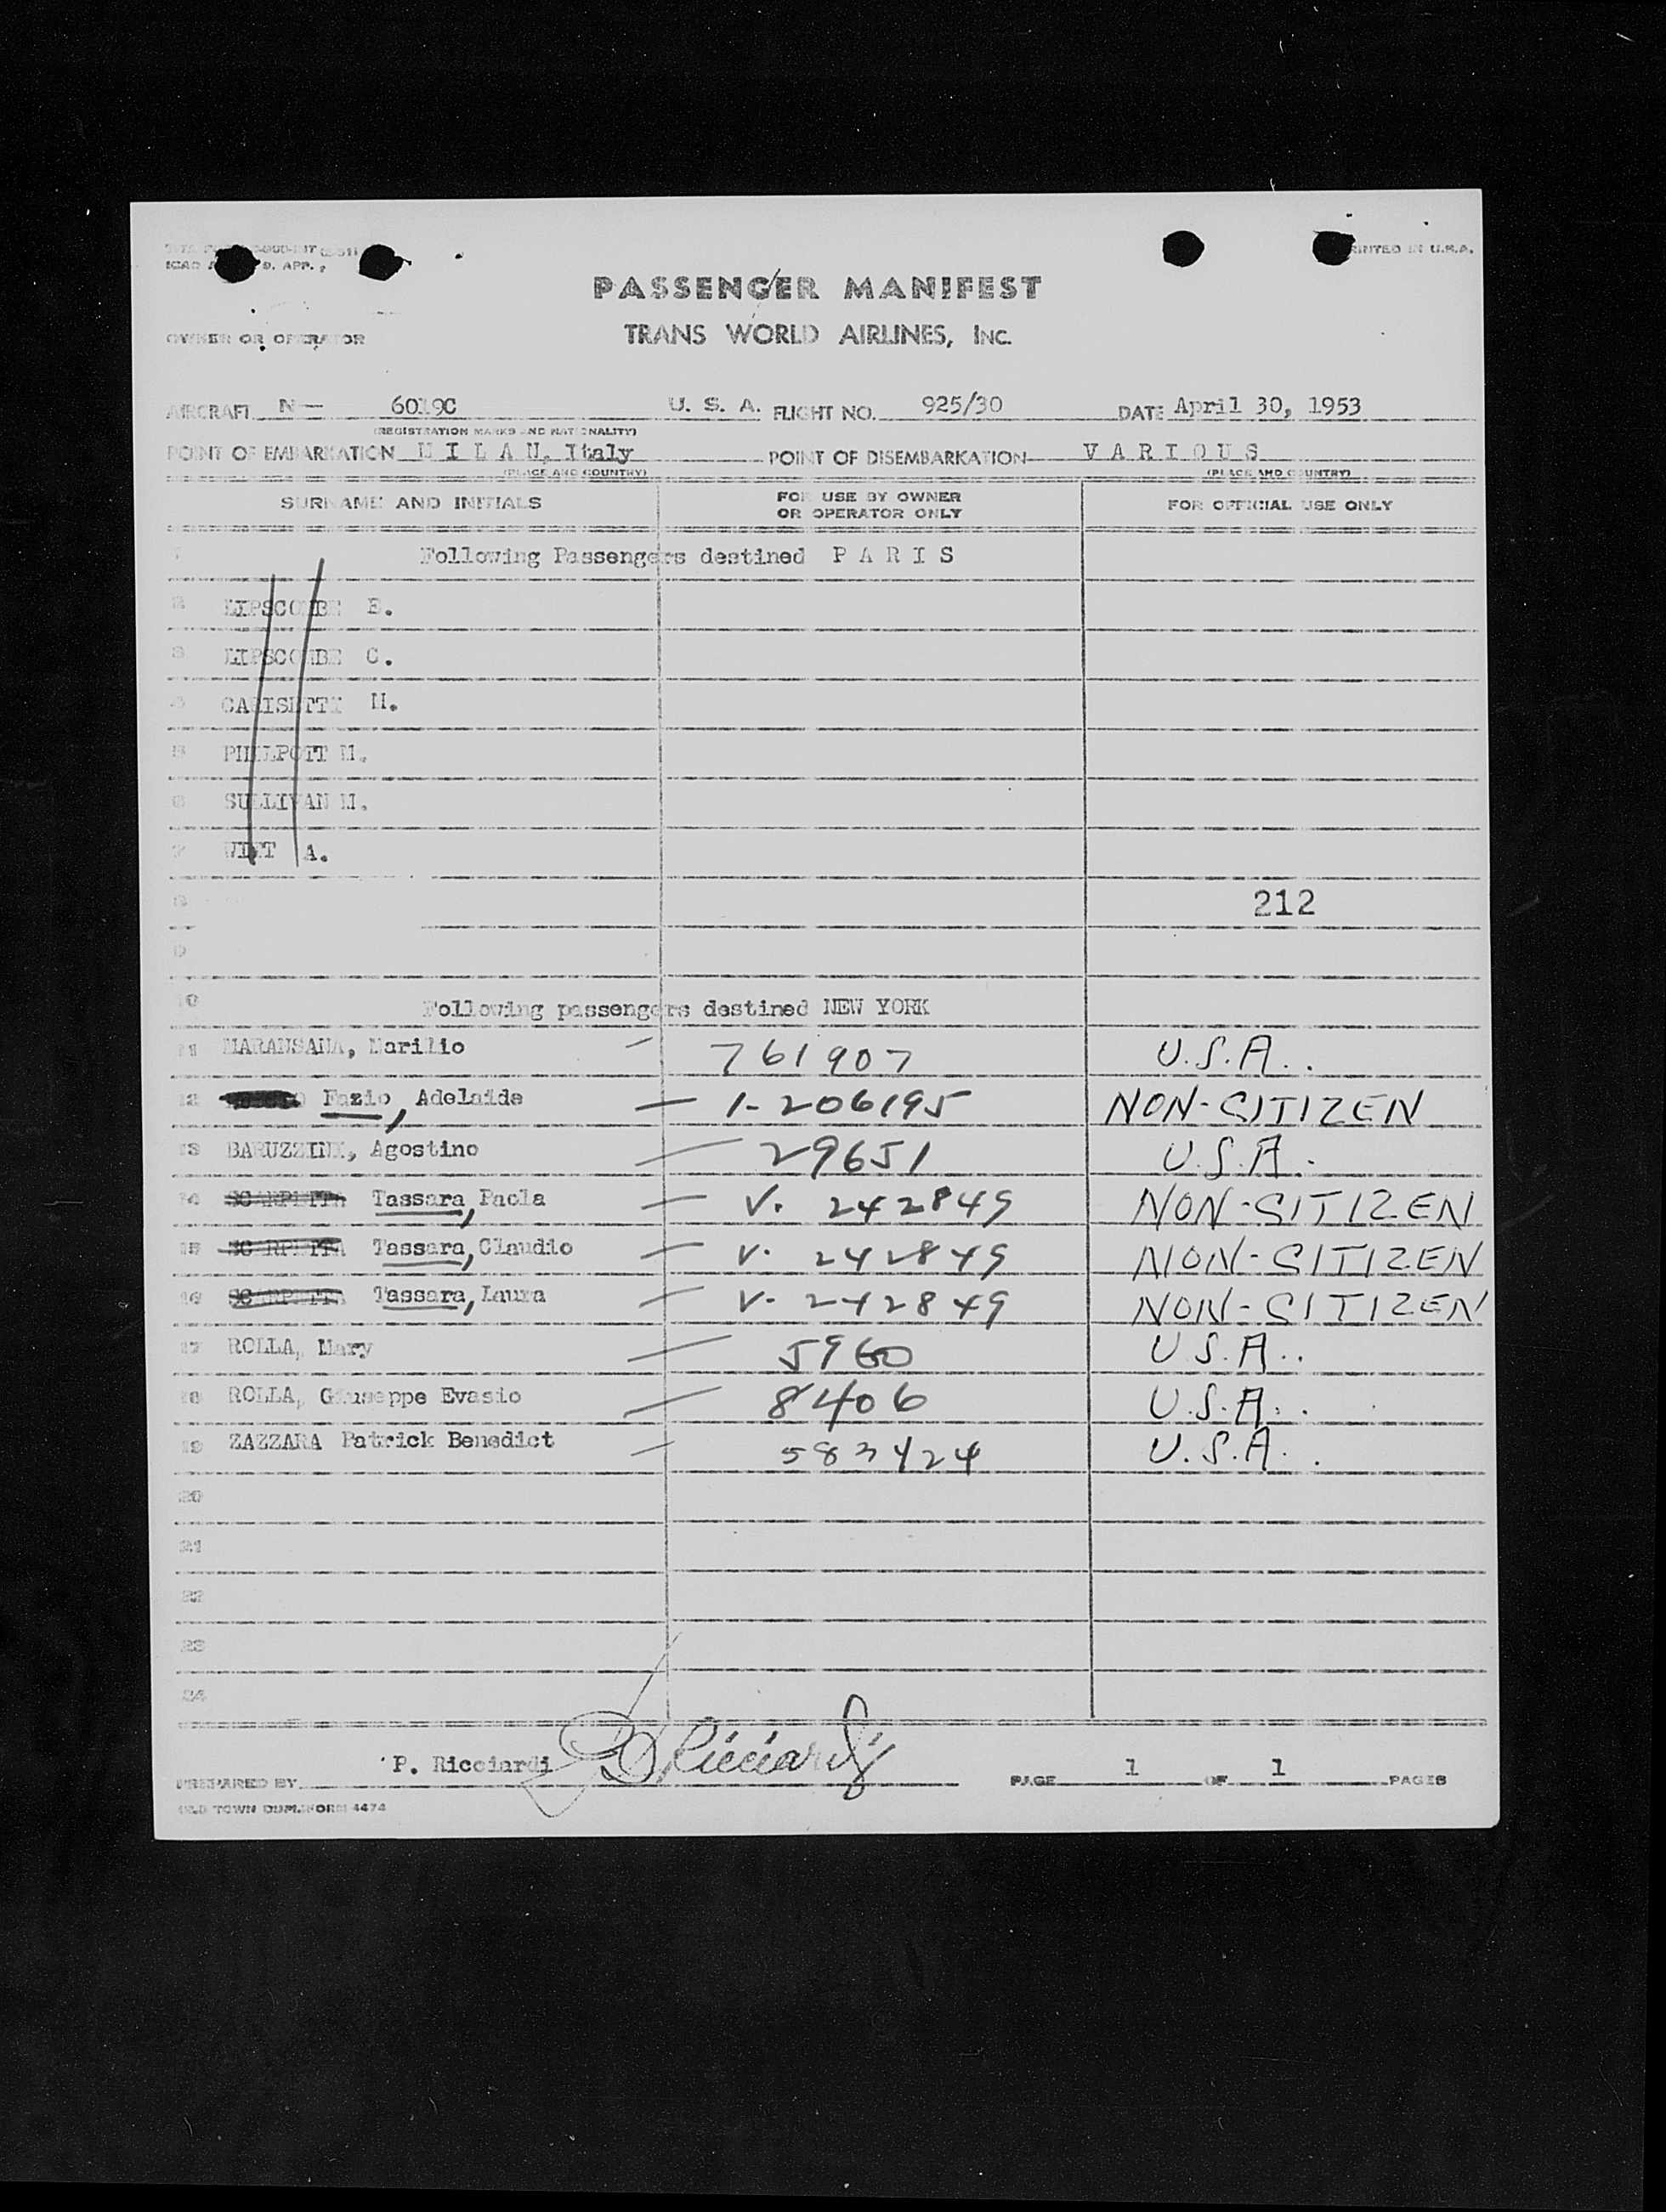 ICAO
PRINTED IN U.S.A.
PASSENGER MANIFEST
TRANS WORLD AIRLINES, INC.
OWNER OR OPERATOR
AIRCRAFT N — 6019C U. S. A. FLIGHT NO. 925/30 DATE April 30, 1953
(REGISTRATION MARKS AND NATIONALITY)
POINT OF EMBARKATION M I L A N, Italy POINT OF DISEMBARKATION V A R I O U S
(PLACE AND COUNTRY) (PLACE AND COUNTRY)
SURNAME AND INITIALS FOR USE BY OWNER OR OPERATOR ONLY FOR OFFICIAL USE ONLY
1 Following Passengers destined P A R I S
2 LIPSCOMBE E.
3 LIPSCOMBE C.
4 M.
5 PHILPOTT M.
6 SULLIVAN M.
7 A.
8 212
9
10 Following passengers destined NEW YORK
11 MARANSANA, Marilio — 761907 U.S.A.
12 Fazio, Adelaide — 1-206195 NON-CITIZEN
13 BARUZZINI, Agostino — 29651 U.S.A.
14 SCARPETTA Tassara, Paola — V. 242849 NON-CITIZEN
15 SCARPETTA Tassara, Claudio — V. 242849 NON-CITIZEN
16 SCARPETTA Tassara, Laura — V. 242849 NON-CITIZEN
17 ROLLA, Mary — 5960 U.S.A.
18 ROLLA, Giuseppe Evasio — 8406 U.S.A.
19 ZAZZARA Patrick Benedict — 583424 U.S.A.
20
21
22
23
24
PREPARED BY P. Ricciardi P Ricciardi PAGE 1 OF 1 PAGES
OLD TOWN DUPLIFORM 4474